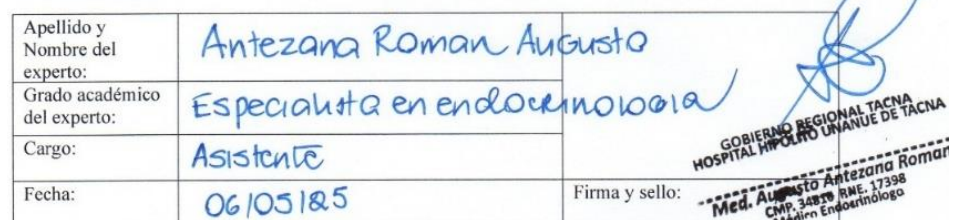 Apellido y
Nombre del
experto:
Antezana Roman Augusto
Grado académico
del experto:
Especialista en endocrinologia
Cargo:
Asistente
Fecha:
06/05/25
Firma y sello:
GOBIERNO REGIONAL TACNA
HOSPITAL HIPÓLITO UNANUE DE TACNA
Med. Augusto Antezana Roman
CMP. 34816 RNE. 17398
Médico Endocrinólogo